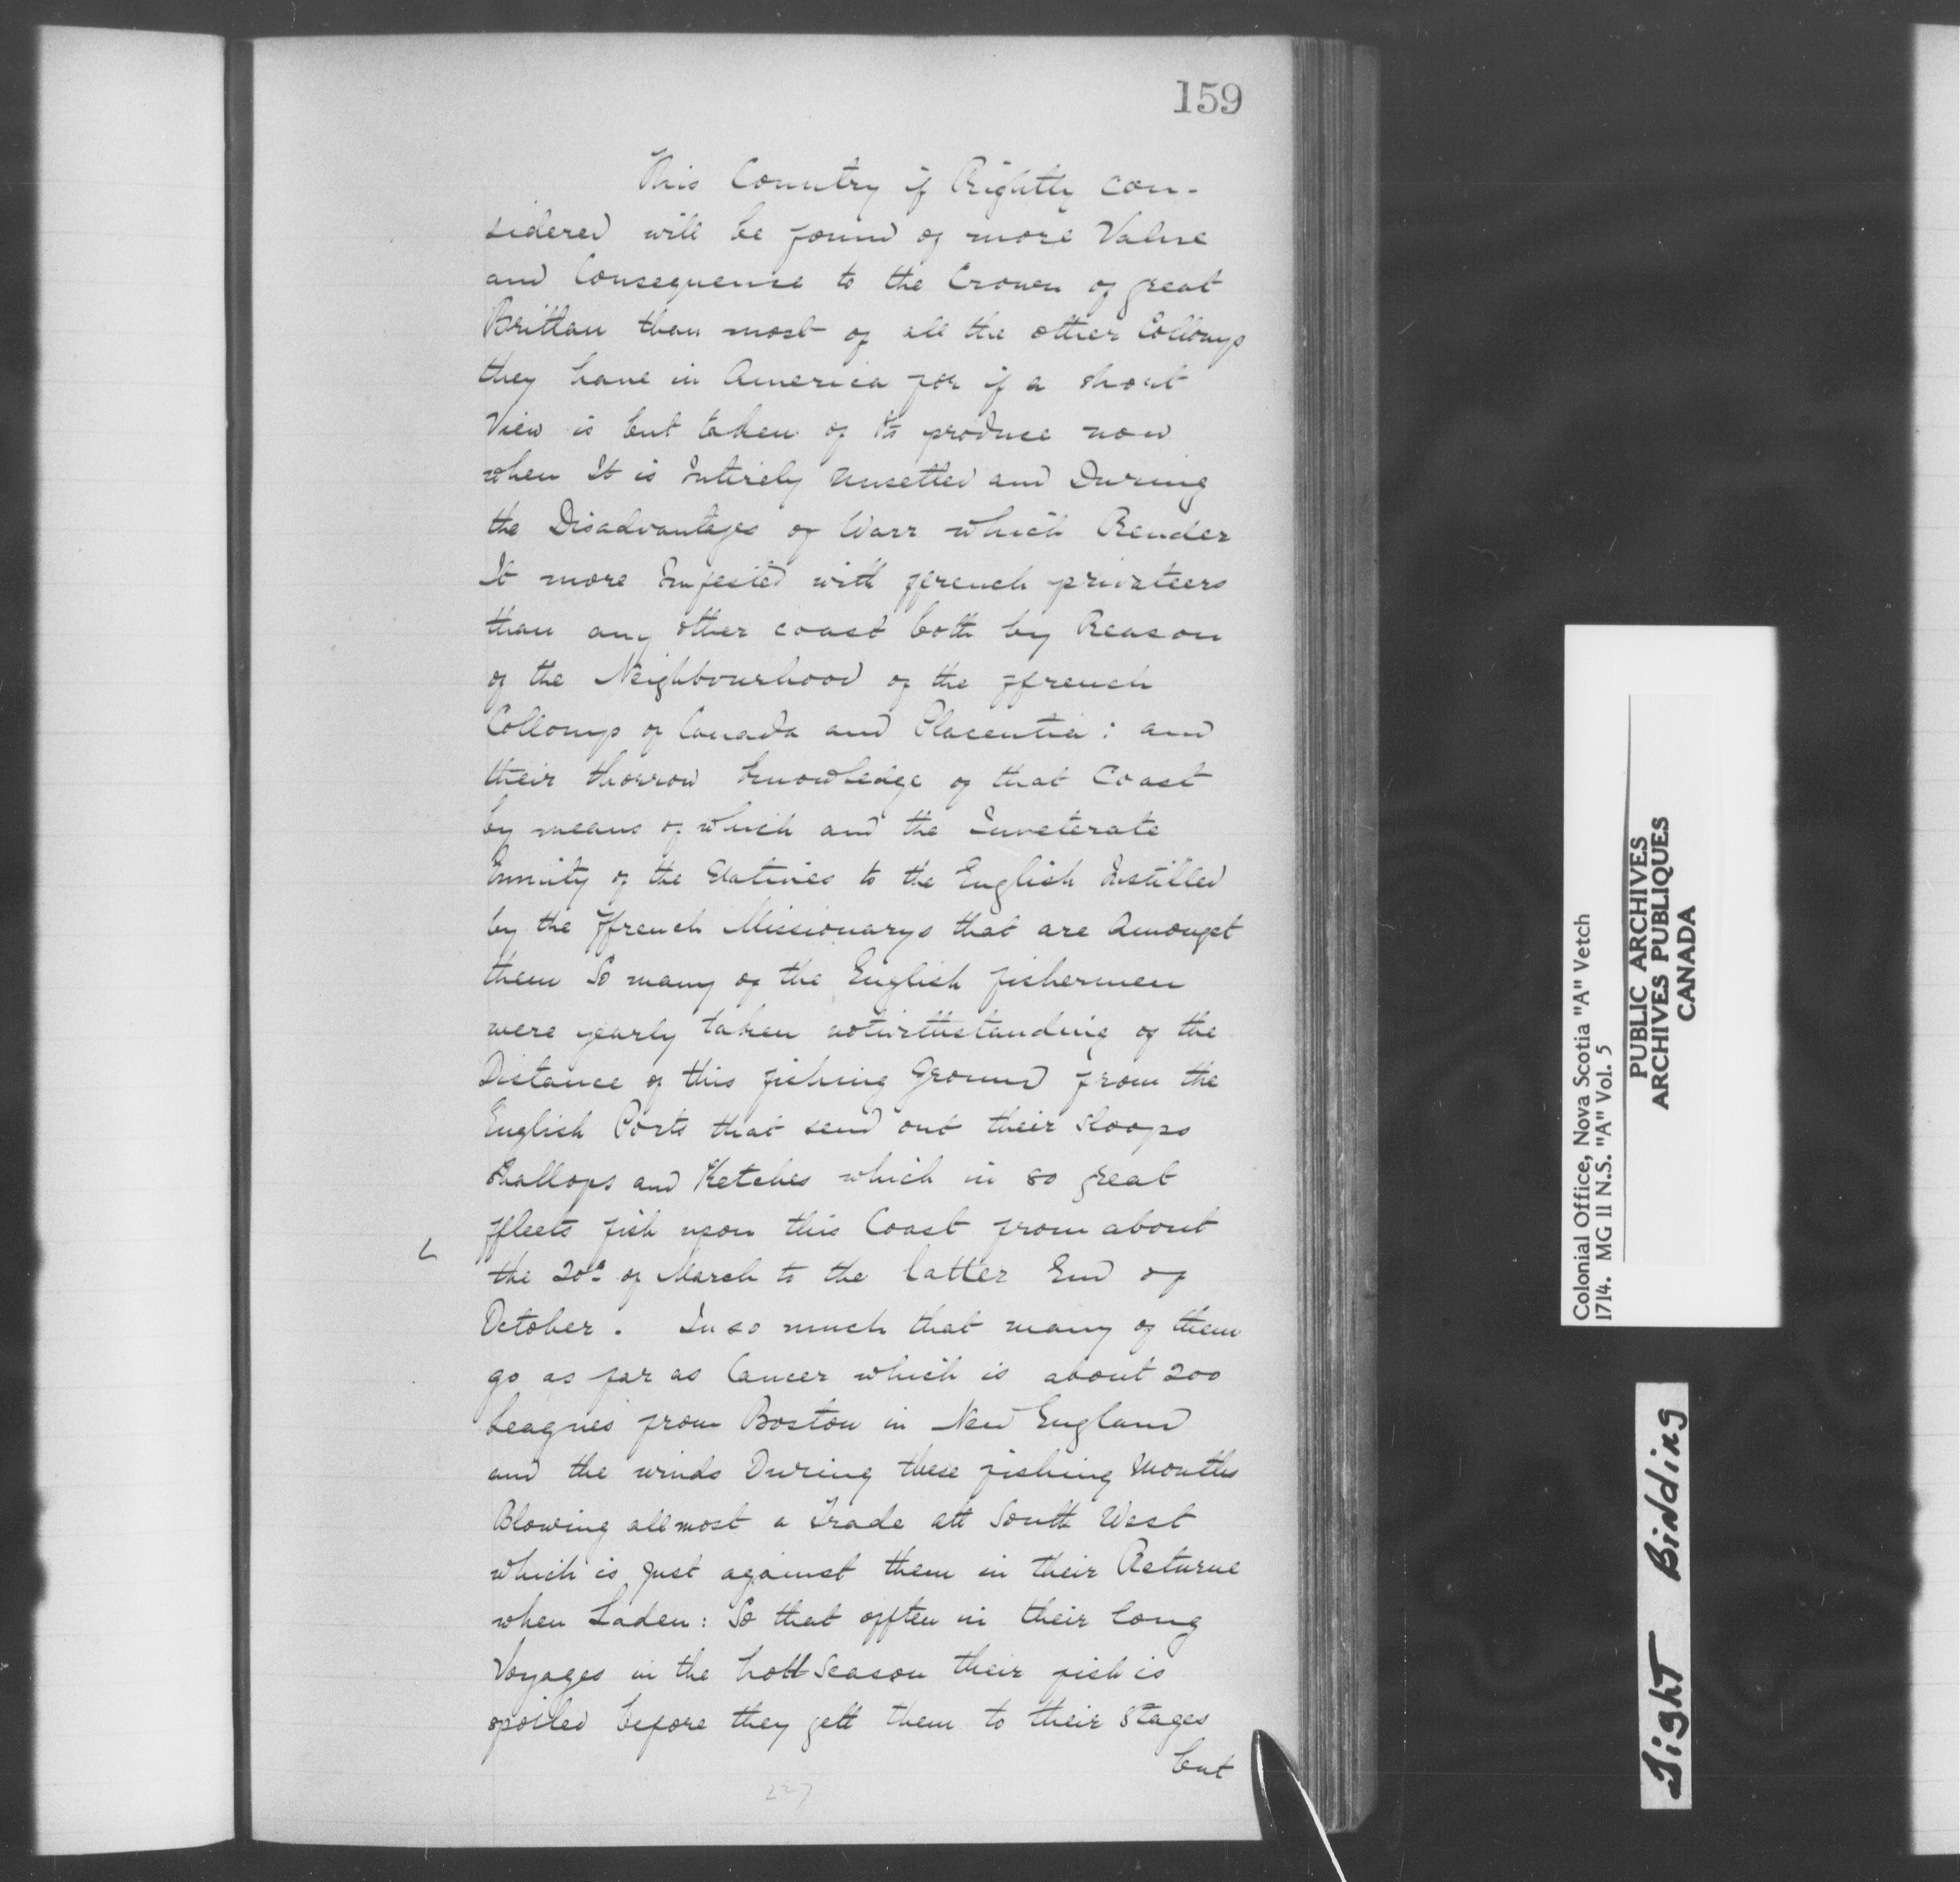 159
This Country if Rightly con-
sidered will be found of more Value
and Consequence to the Crown of great
Brittan than most of all the other Collonys
they have in America for if a short
View is but taken of its produce now
when It is Intirely unsetled and During
the Disadvantages of Warr which Render
It more Infested with ffrench privateers
than any other coast both by Reason
of the Neighbourhood of the ffrench
Collonys of Canada and Placentia: and
their thorrow knowledge of that Coast
by means of which and the Inveterate
Enmity of the Natives to the English Instilled
by the ffrench Missionarys that are Amongst
them So many of the English fishermen
were yearly taken notwithstanding of the
Distance of this fishing Ground from the
English Ports that send out their Sloops
Shallops and Ketches which in so great
ffleets fish upon this Coast from about
the 20th of March to the latter End of
October. In so much that many of them
go as far as Cancer which is about 200
Leagues from Boston in New England
and the winds During these fishing Months
Blowing allmost a Trade att South West
which is just against them in their Returne
when Laden: So that offten in their long
Voyages in the hott Season their fish is
spoiled before they gett them to their Stages
but
227
Colonial Office, Nova Scotia "A" Vetch
1714. MG 11 N.S. "A" Vol. 5
PUBLIC ARCHIVES
ARCHIVES PUBLIQUES
CANADA
Tight Binding